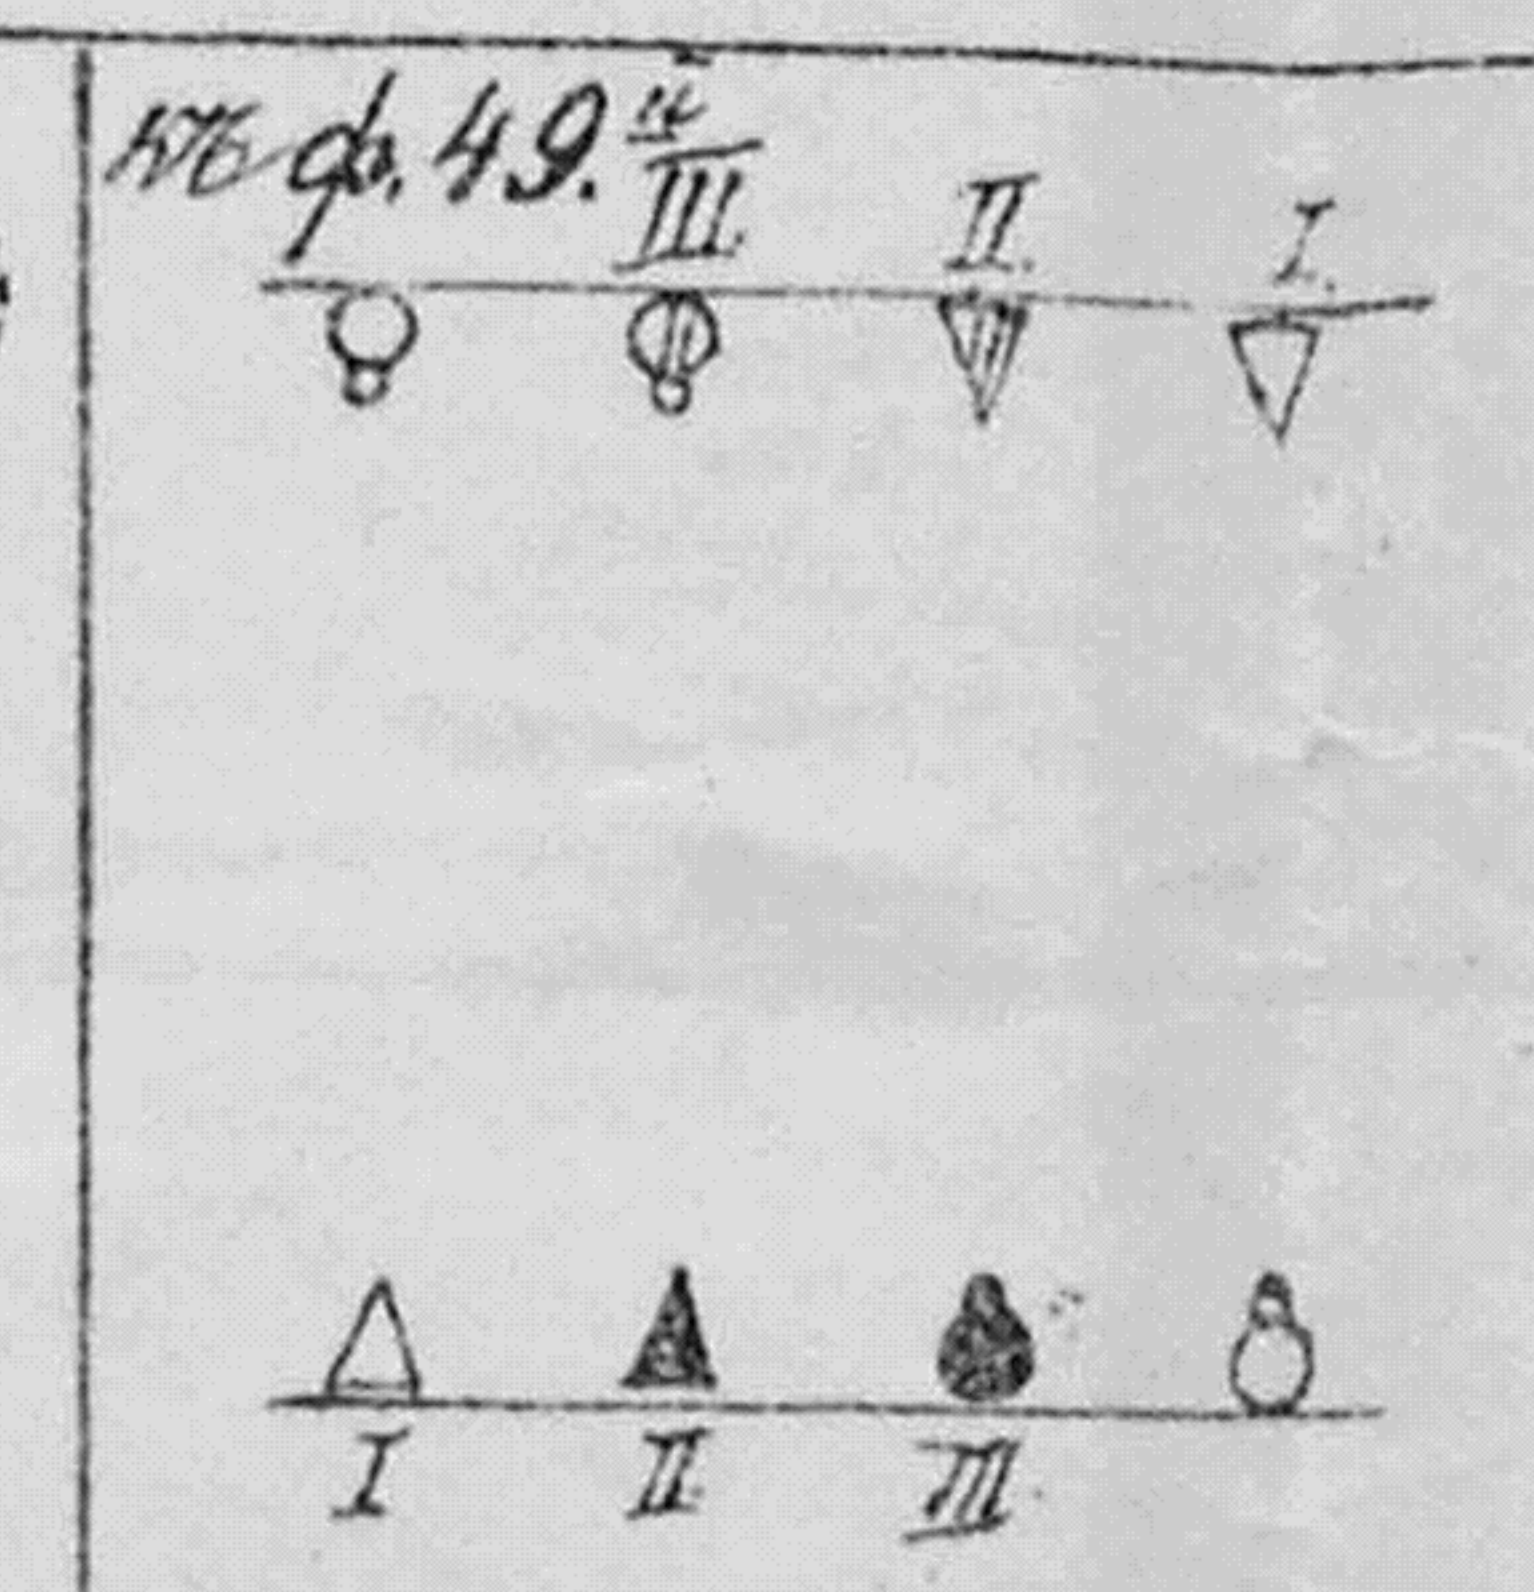 ф. 49.
III. II. I.
I II. III.